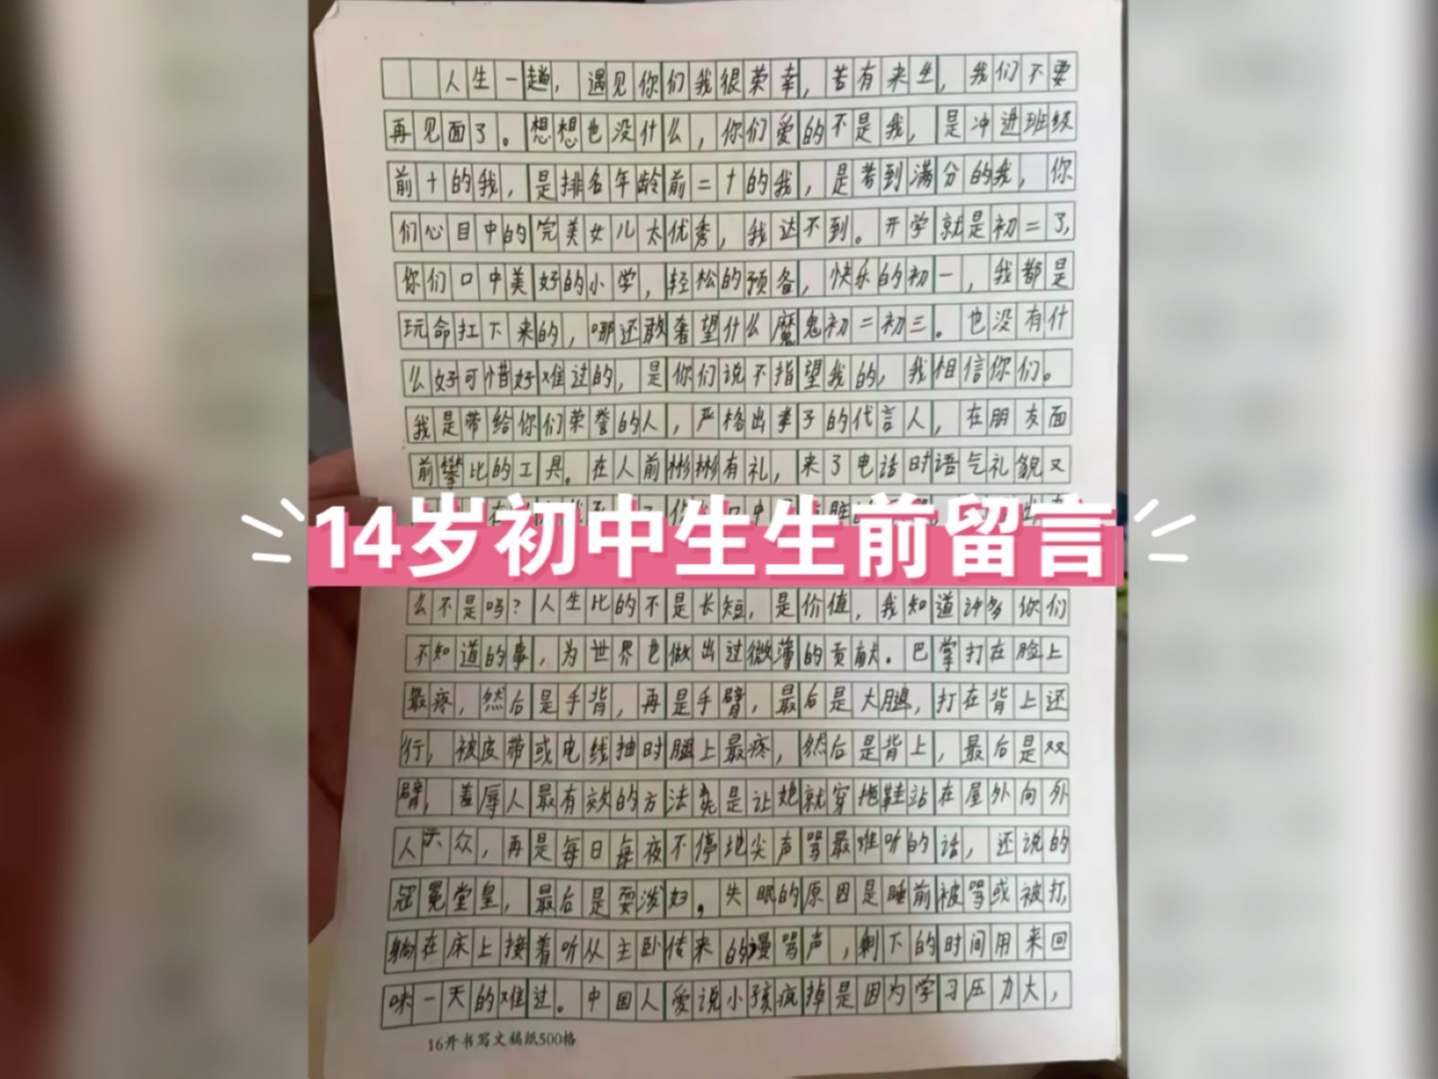 人生一趟，遇见你们我很荣幸，若有来生，我们不要
再见面了。想想也没什么，你们爱的不是我，是冲进班级
前十的我，是排名年龄前二十的我，是考到满分的我，你
们心目中的完美女儿太优秀，我达不到。开学就是初二了，
你们口中美好的小学，轻松的预备，快乐的初一，我都是
玩命扛下来的，哪还敢奢望什么魔鬼初二初三。也没有什
么好可惜好难过的，是你们说不指望我的，我相信你们。
我是带给你们荣誉的人，严格出拳子的代言人，在朋友面
前攀比的工具。在人前彬彬有礼，来了电话时语气礼貌又
14岁初中生生前留言
么不是吗？人生比的不是长短，是价值，我知道许多你们
不知道的事，为世界也做出过微薄的贡献。巴掌打在脸上
最疼，然后是手背，再是手臂，最后是大腿，打在背上还
行，被皮带或电线抽时腿上最疼，然后是背上，最后是双
臂，羞辱人最有效的方法竟是让她就穿拖鞋站在屋外向外
人示众，再是每日每夜不停地尖声骂最难听的话，还说的
冠冕堂皇，最后是耍泼妇。失眠的原因是睡前被骂或被打，
躺在床上接着听从主卧传来的谩骂声，剩下的时间用来回
味一天的难过。中国人爱说小孩疯掉是因为学习压力大，
16开书写文稿纸500格